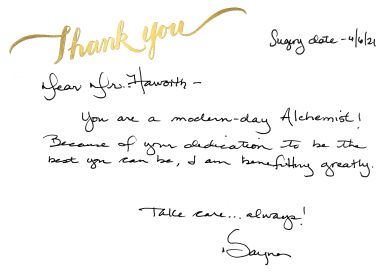 Thank you
Surgery date - 4/6/21
Dear Dr. Haworth -
You are a modern-day Alchemist!
Because of your dedication to be the
best you can be, I am benefitting greatly.
Take care... always!